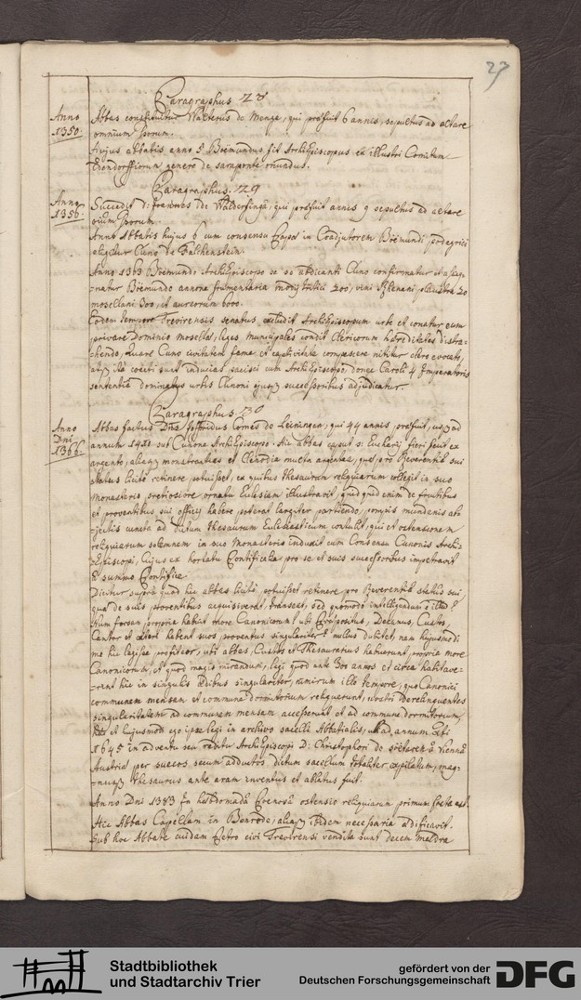 27
Paragraphus 28
Anno 1350.
Abbas constituitur Walterus de Menge, qui præfuit 6 annis, sepultus ad altare
omnium
Hujus abbatis anno 5 Boemundus fit Archiepiscopus ex illustri Comitum
genere de
Paragraphus 29
Anno 1356.
Succedit D: de qui præfuit annis 9 sepultus ad altare
Anno Abbatis hujus 6 cum consensu in Coadjutorem Boemundi
eligitur Cuno de Falkenstein.
Anno 1362 Boemundo Archiepiscopo se abdicanti Cuno confirmatur et
Boemundo annonæ frumentariæ 200, vini 20
mosellani 300, et aureorum 600.
Eodem tempore Trevirensis senatus, excludit Archiepiscopum urbe et conatur eum
privare Dominio mosellæ, leges municipales condit Clericorum hæreditates
quare Cuno civitatem fame et compescere nititur clero evocato,
cum Archiepiscopo, donec Caroli 4 Imperatoris
sententia dominatus urbis Cunoni successoribus adjudicatur.
Paragraphus 30
Anno Dni 1366
Abbas factus Dns Comes de Leiningen, qui 44 annis præfuit, usq ad
annum sub Cunone Archiepiscopo. Hic abbas caput s: Eucharij fieri fecit ex
argento, monstrantias et Clenodia multa argentea, quæ pro Reverentia sui
status licite retinere potuisset, ex quibus thesaurum reliquiarum collegit in suo
Monasterio pretioso ornatu Ecclesiam illustravit, quidquid enim de fructibus
et proventibus sui officij habere poterat largiter partiendo, pompis mundanis
cuncta ad dictum thesaurum Ecclesiasticum contulit, qui et ostensionem
reliquiarum solemnem in suo Monasterio induxit cum Consensu Cunonis Archi-
Episcopi, cujus ex hortatu Pontificalia pro se et suis successoribus impetravit
à summo Pontifice.
Dicitur supra quod hic abbas licite potuisset retinere pro Reverentia status sui
quæ de suis proventibus acquisiverat, sed quomodo intelligendum illud?
forsan propria habuit more Canonicorum, ubi Præpositus, Decanus, Custos,
Cantor et habent suos proventus singulares? nullus dubitet, nam hujusmodi
me hic legisse profiteor, ubi abbas, Custos et Thesaurarius habuerunt propria more
Canonicorum, et quod magis mirandum, legi quod ante 300 annos et circa habitave-
runt hic in singulis ædibus singulariter, nimirum illo tempore, quo Canonici
communem mensam et commune dormitorium reliquerunt, nostri derelinquentes
singularitatem ad communem mensam accesserunt et ad commune dormitorium,
et hujusmodi ego ipse legi in archivo sacelli Abbatialis, ad annum
1645 in adventu seu reditu Archiepiscopi D: Christophori de à Vienna
Austriæ per suecos, secum adductos dictum sacellum totaliter expilatum,
thesaurus ante aram inventus et ablatus fuit.
Anno Dni 1383 In hebdomada ostensio reliquiarum primum facta est.
Hic Abbas Capellam in Benrode, ibidem necessaria ædificavit.
Sub hoc Abbate cuidam Petro civi Trevirensi vendita sunt decem maldra
Stadtbibliothek
und Stadtarchiv Trier
gefördert von der
Deutschen Forschungsgemeinschaft
DFG